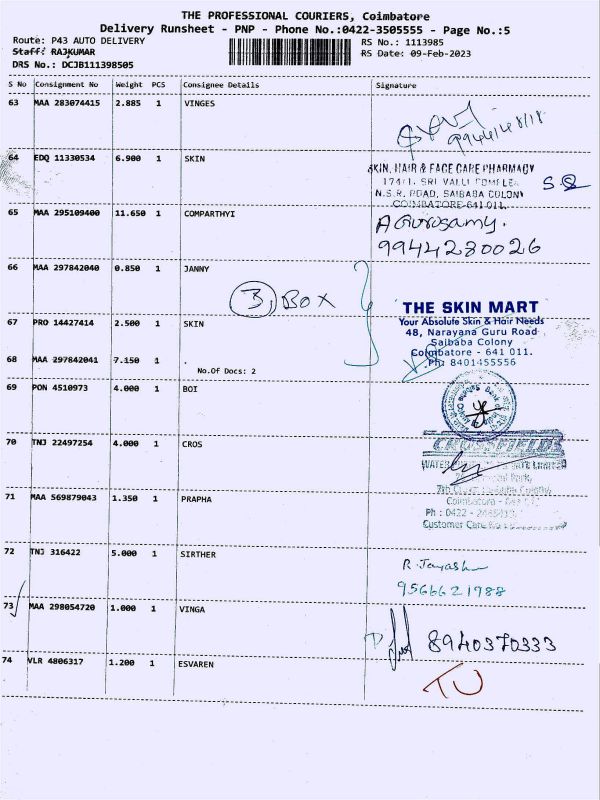 THE PROFESSIONAL COURIERS, Coimbatore
Delivery Runsheet - PNP - Phone No.:0422-3505555 - Page No.:5
Route: P43 AUTO DELIVERY
RS No.: 1113985
Staff: RAJKUMAR
RS Date: 09-Feb-2023
DRS No.: DCJB111398505
S No Consignment No Weight PCS Consignee Details Signature
63 MAA 283074415 2.885 1 VINGES
64 EDQ 11330534 6.900 1 SKIN
SKIN, HAIR & FACE CARE PHARMACY
174/1, SRI VALLI COMPLEX
N.S.R. ROAD, SAIBABA COLONY
COIMBATORE-641 011.
65 MAA 295109400 11.650 1 COMPARTHYI
A Gurusamy.
9944280026
66 MAA 297842040 0.850 1 JANNY
3, BOX
THE SKIN MART
Your Absolute Skin & Hair Needs
48, Narayana Guru Road
Saibaba Colony
Coimbatore - 641 011.
Ph: 8401455556
67 PRO 14427414 2.500 1 SKIN
68 MAA 297842041 7.150 1 .
No.Of Docs: 2
69 PON 4510973 4.000 1 BOI
70 TNJ 22497254 4.000 1 CROS
CROSSFIELDS
71 MAA 569879043 1.350 1 PRAPHA
Customer Care No
72 TNJ 316422 5.000 1 SIRTHER
9566621988
73 MAA 298054720 1.000 1 VINGA
8940370333
74 VLR 4806317 1.200 1 ESVAREN
TU